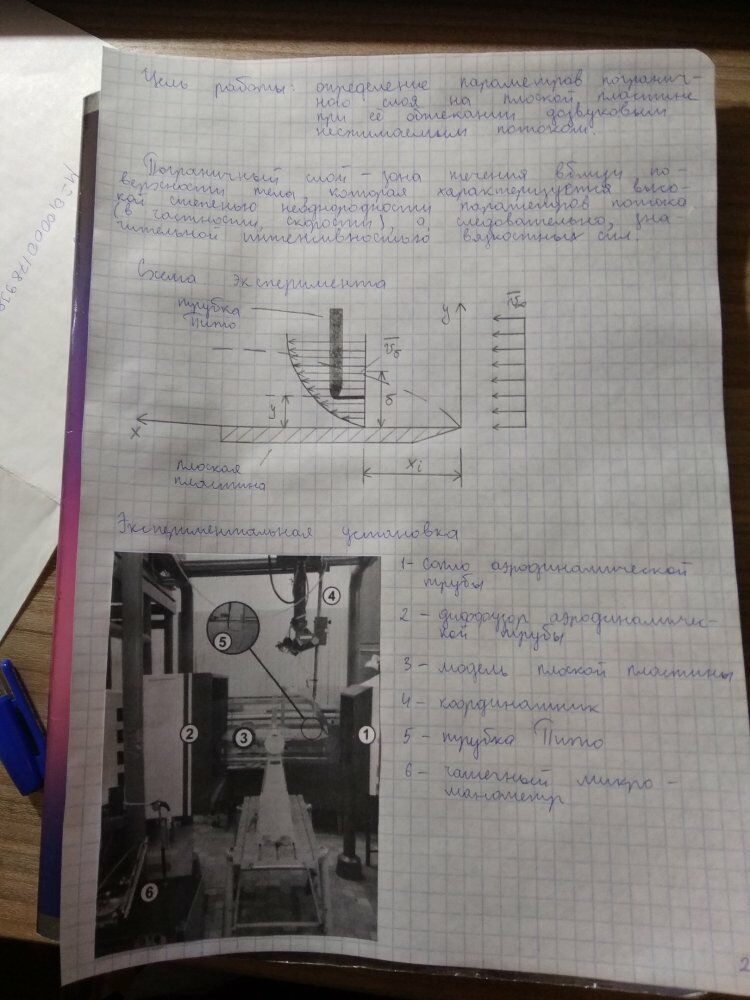 Цель работы: определение параметров погранич-
ного слоя на плоской пластине
при её обтекании дозвуковым
несжимаемым потоком.
Пограничный слой – зона течения вблизи по-
верхности тела, которая характеризуется высо-
кой степенью неоднородности параметров потока
(в частности, скорости), а, следовательно, зна-
чительной интенсивностью вязкостных сил.
Схема эксперимента
трубка
Пито
y
v∞
vδ
δ
y
x
xi
плоская
пластина
Экспериментальная установка
1- Сопло аэродинамической
трубы
2 – диффузор аэродинамичес-
кой трубы
3 – модель плоской пластины
4 – координатник
5 – трубка Пито
6 – чашечный микро-
манометр
4
5
2
3
1
6
2